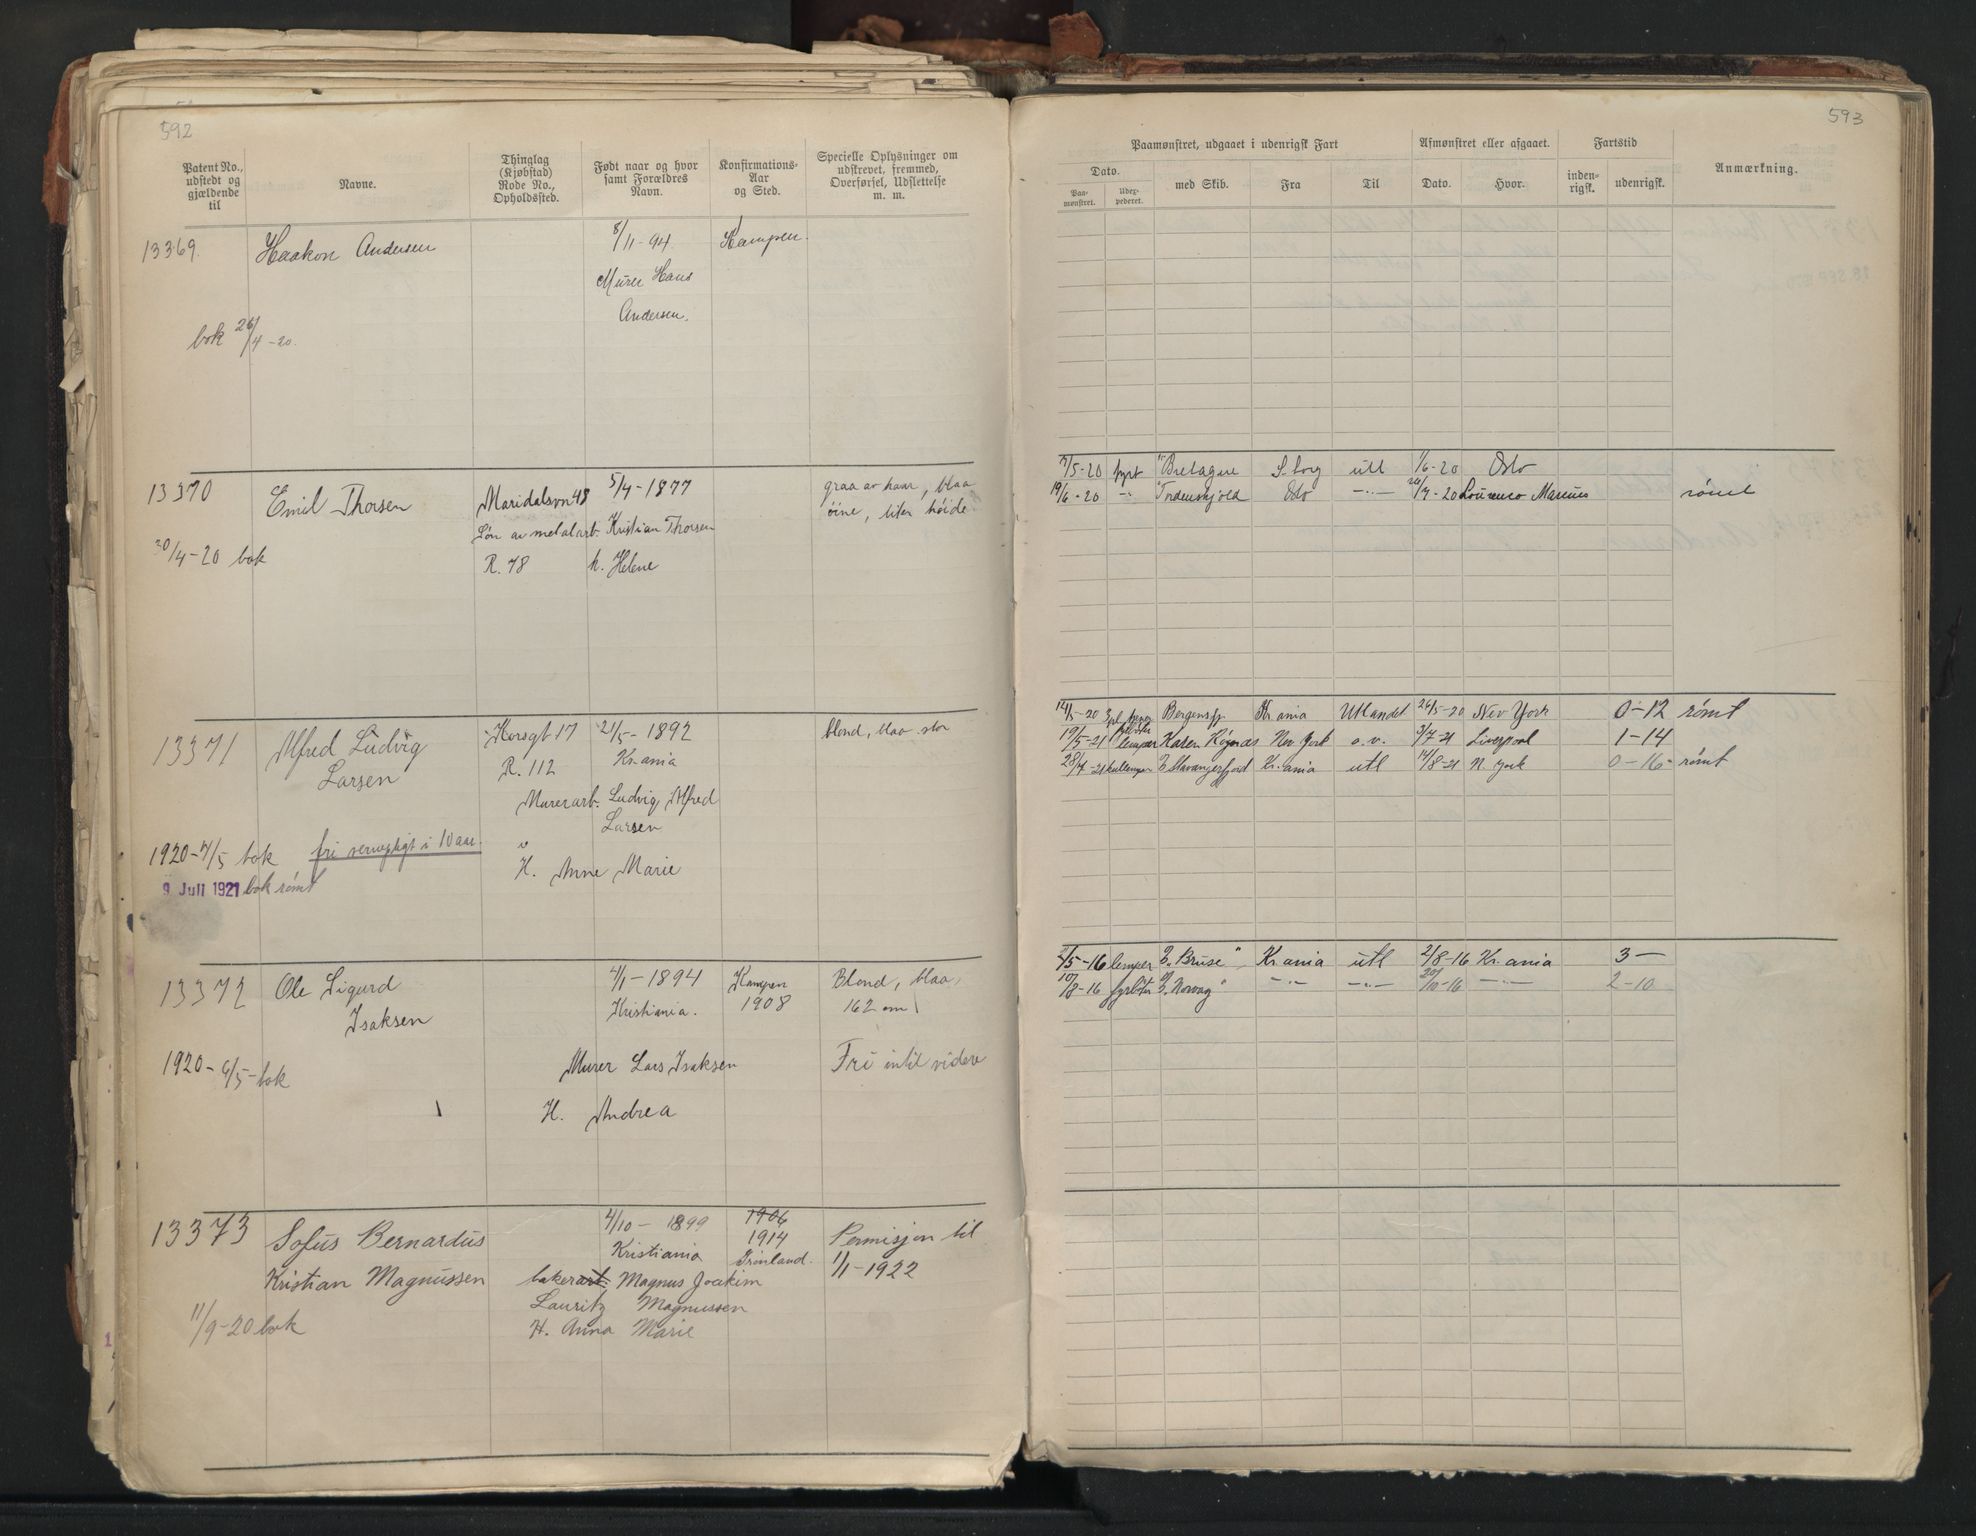 592
Patent No., udstedt og gjældende til
Navne.
Thinglag (Kjøbstad) Rode No., Opholdssted.
Født naar og hvor samt Forældres Navn.
Konfirmations-Aar og Sted.
Specielle Oplysninger om udskrevet, fremmed, Overførsel, Udslettelse m. m.
13369. Haakon Andersen 8/11-94 Kampen.
Murer Hans
Andersen.
bok 26/4-20.
13370 Emil Thorsen Maridalsvn 48 5/4-1877 graa av haar, blaa
øine, liten høide.
Søn av metalarb. Kristian Thorsen
30/4-20 bok R. 78 h. Helene
13371 Alfred Ludvig Korsgt 17 21/5-1892 blond, blaa stor
Larsen R. 112 Kr.ania
Murerarb. Ludvig Alfred
Larsen
1920-7/5 bok fri vernepligt i 10 aar.
H. Anne Marie
9 Juli 1921 bok rømt
13372 Ole Sigurd 4/1-1894 Kampen Blond, blaa,
Isaksen Kristiania. 1908 162 cm
1920-6/5-bok Murer Lars Isaksen Fri intil videre
H. Andrea
13373 Sofus Bernardus 4/10-1899 1906
Kristiania 1914 Permisjon til
Kristian Magnussen bakerart. Magnus Joakim Grønland. 1/1-1922
Lauritz Magnussen
11/9-20 bok H. Anna Marie
593
Paamønstret, udgaaet i udenrigsk Fart
Afmønstret eller afgaaet.
Fartstid
Anmærkning.
Dato.
Paa-mønstret.
Udex-pederet.
med Skib.
Fra
Til
Dato.
Hvor.
inden-rigsk.
udenrigsk.
7/5-20 fyrb "Bretagne S.borg utl 1/6-20 Oslo
19/6-20 -"- Tordenskjold Oslo -"- /7-20 Lourenco Marcues rømt
12/5-20 Bergensfj. Kr.ania Utlandet 26/5-20 New York 0-12 rømt
19/5-21 lemper Karen New York o.v. 3/7-21 Liverpool 1-14
28/7-21 kullemper Stavangerfjord Kr.ania utl 14/8-21 N. York 0-16- rømt
/5-16 lemper "Bruse" Kr.ania utl 2/8-16 Kr.ania 3-
10/8-16 fyrbøter "Norvag" -"- -"- 20/10-16 -"- 2-10